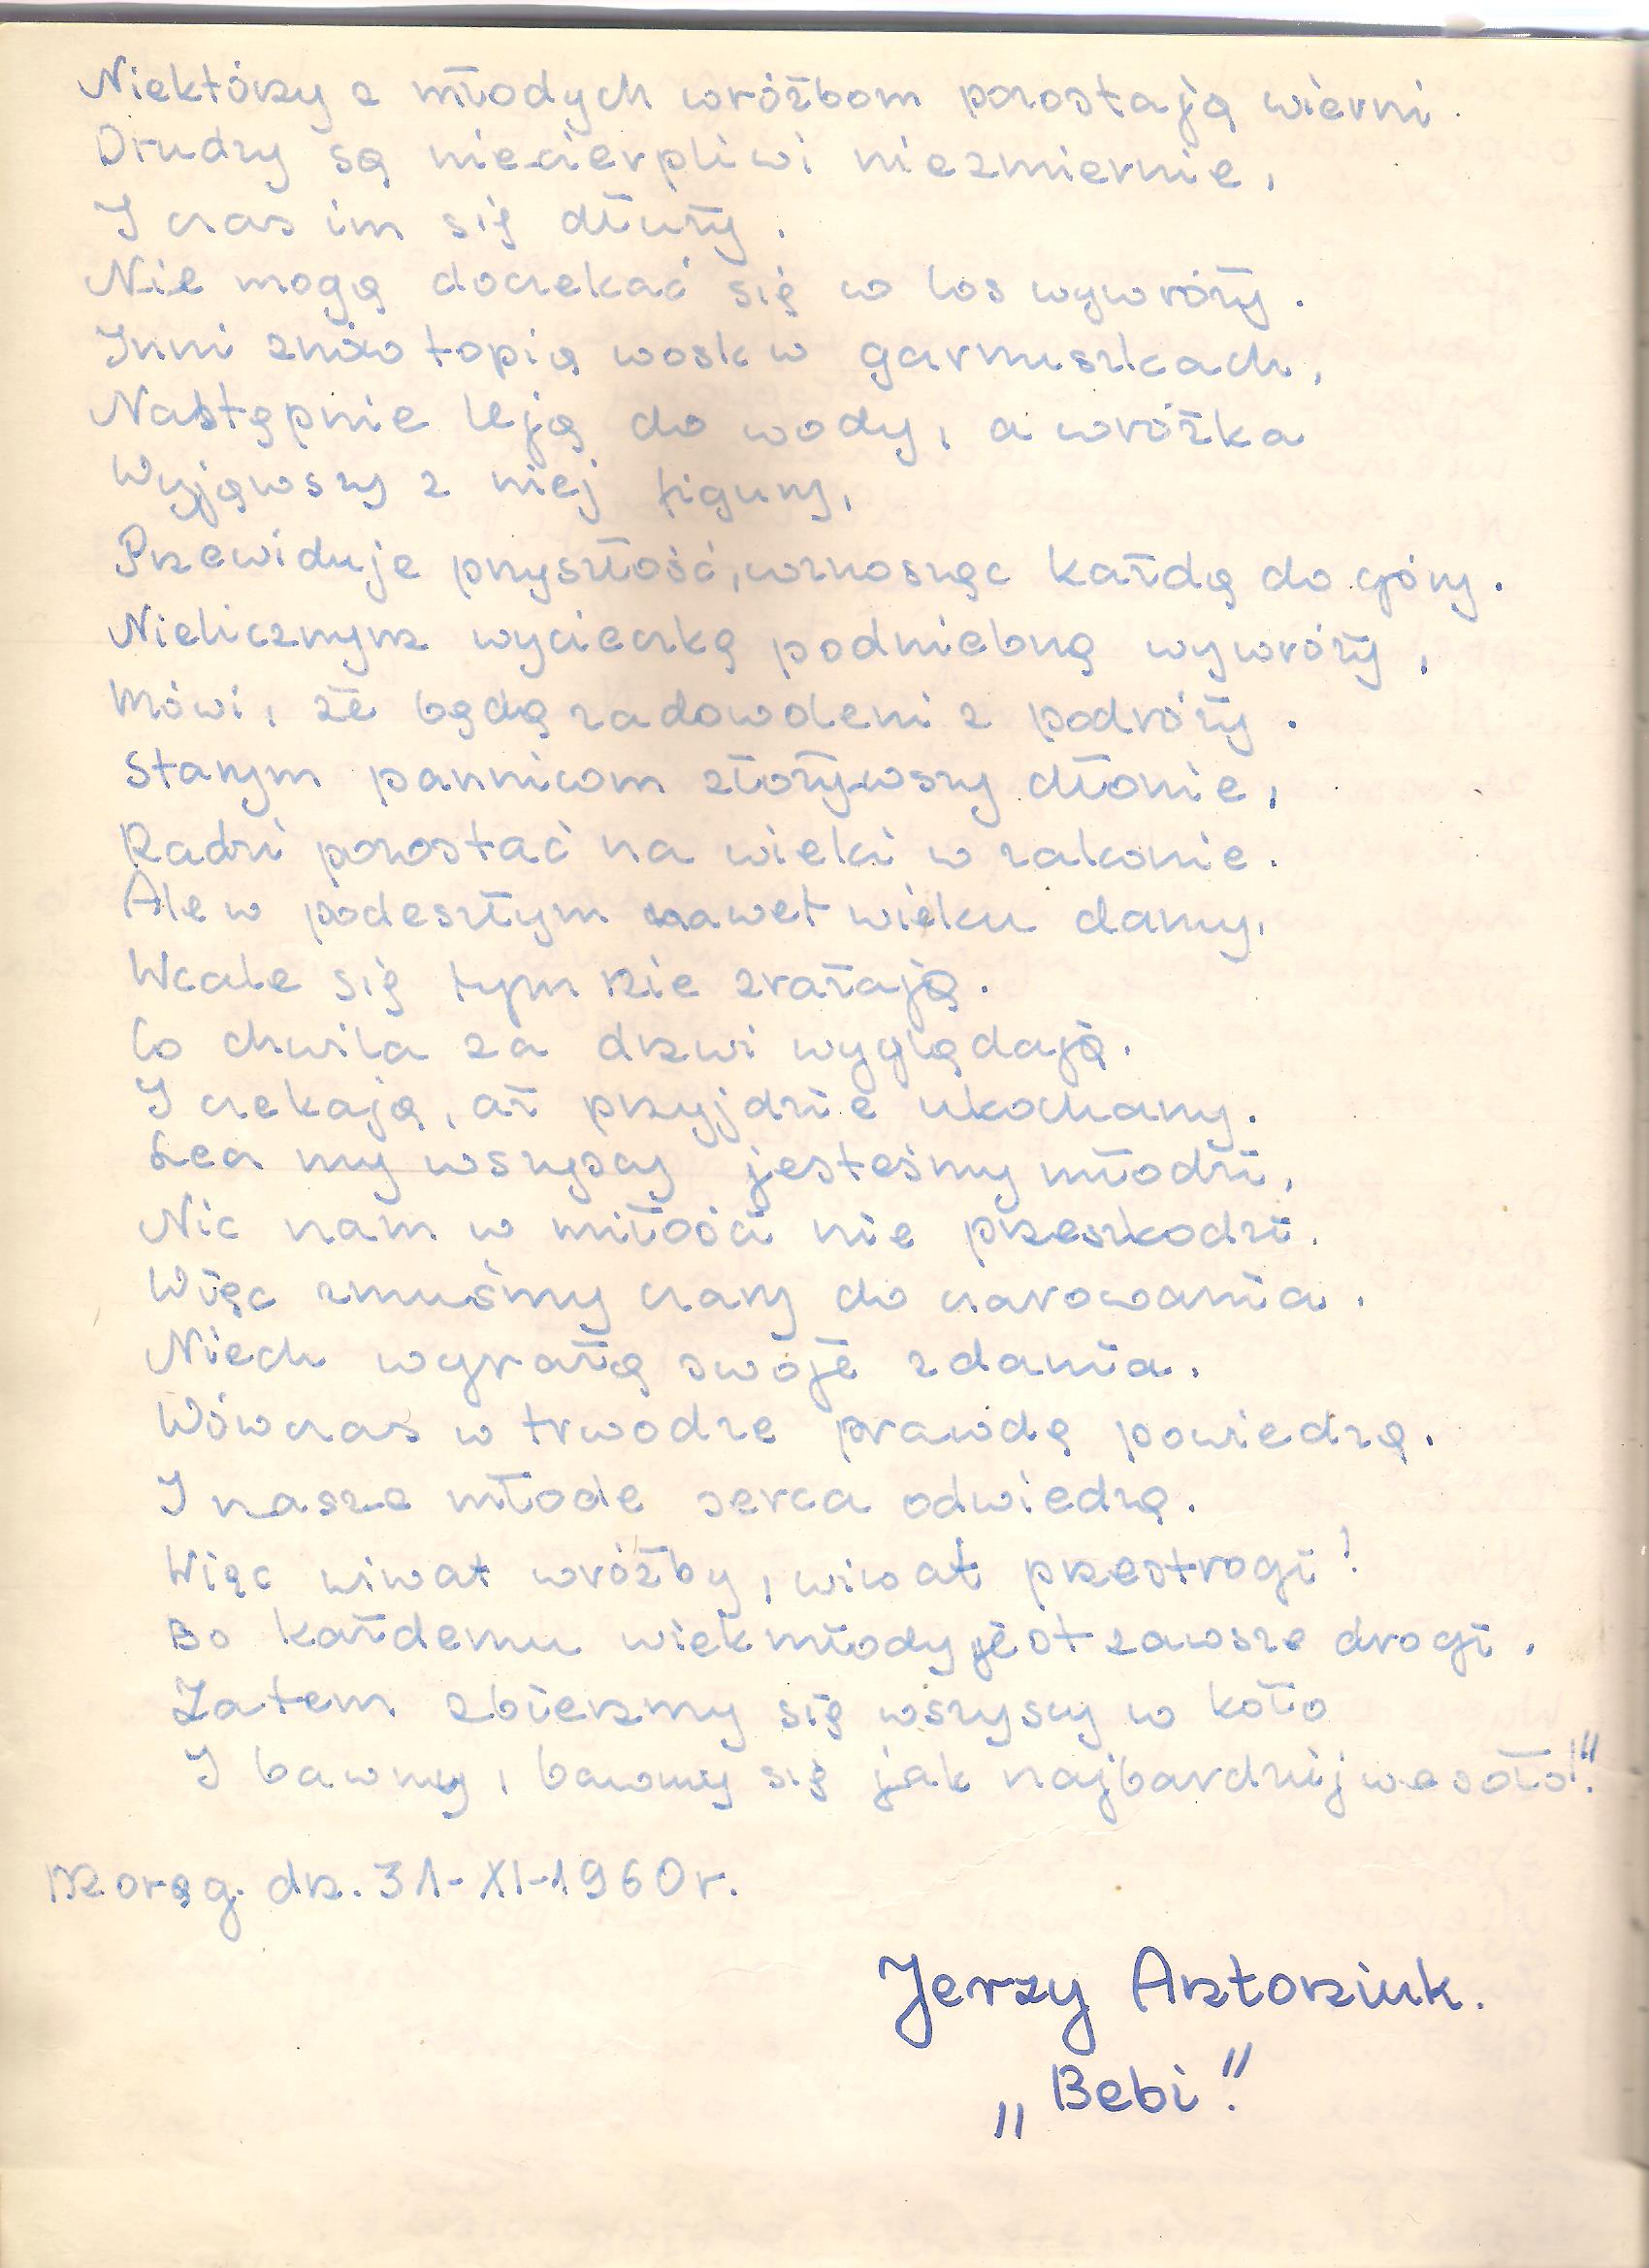 Niektórzy z młodych wróżbom pozostają wierni.
Drudzy są niecierpliwi niezmiernie,
I czas im się dłuży.
Nie mogą doczekać się co los wywróży.
Inni znów topią wosk w garnuszkach,
Następnie leją do wody, a wróżka
Wyjąwszy z niej figury,
Przewiduje przyszłość, wznosząc każdą do góry.
Nielicznym wycieczkę podniebną wywróży,
Mówi, że będą zadowoleni z podróży.
Starym pannicom złożywszy dłonie,
Radzi pozostać na wieki w zakonie.
Ale w podeszłym nawet wieku damy,
Wcale się tym nie zrażają.
Co chwila za drzwi wyglądają.
I czekają, aż przyjdzie ukochany.
Lecz my wszyscy jesteśmy młodzi,
Nic nam w miłości nie przeszkodzi.
Więc zmuśmy czary do czarowania.
Niech wyrażą swoje zdania.
Wówczas w trwodze prawdę powiedzą.
I nasze młode serca odwiedzą.
Więc wiwat wróżby, wiwat przestrogi!
Bo każdemu wiek młody jest zawsze drogi.
Zatem zbierzmy się wszyscy w koło
I bawmy, bawmy się jak najbardziej wesoło!"
dn. 31-XI-1960r.
Jerzy Antoniuk.
„Bebi".